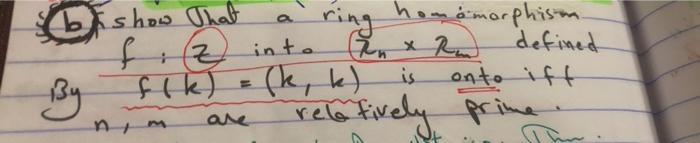 (b) show That a ring homomorphism
f : Z into Zn x Zm defined
By f(k) = (k, k) is onto iff
n, m are relatively prime.